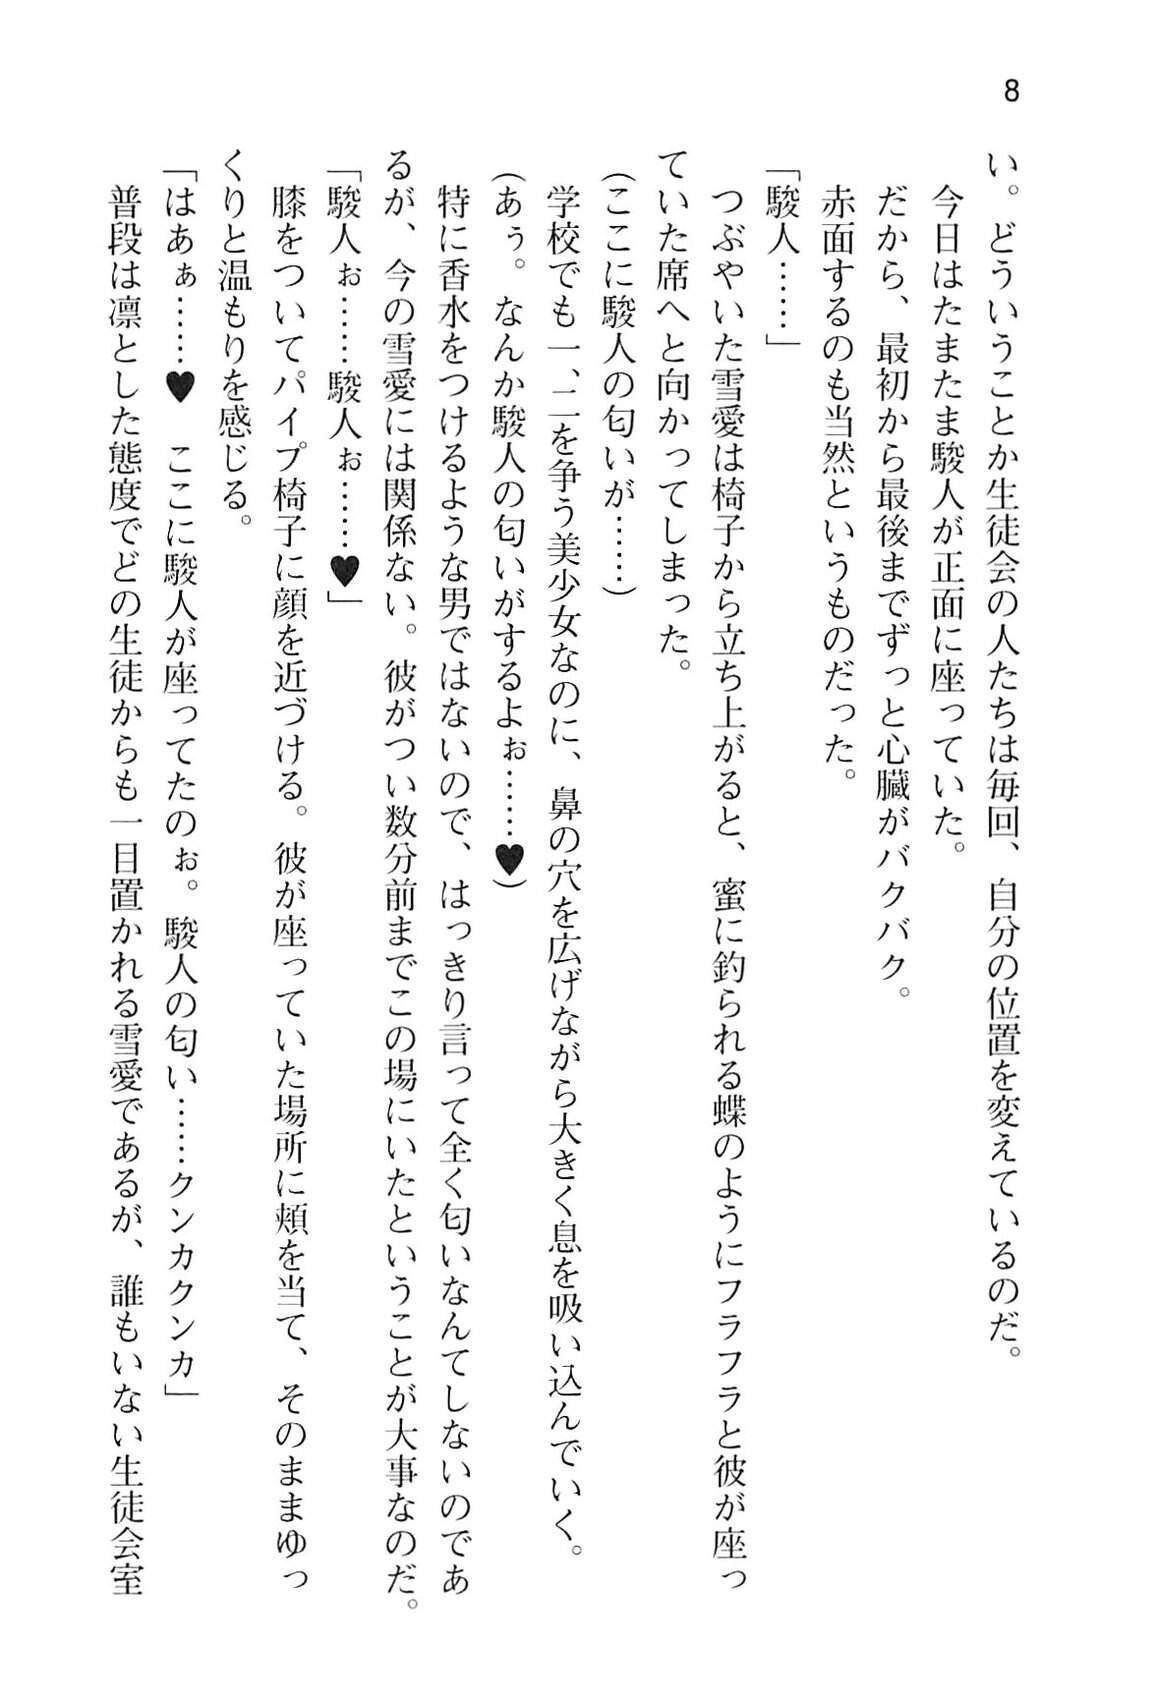 8
い。どういうことか生徒会の人たちは毎回、自分の位置を変えているのだ。
今日はたまたま駿人が正面に座っていた。
だから、最初から最後までずっと心臓がバクバク。
赤面するのも当然というものだった。
「駿人……」
つぶやいた雪愛は椅子から立ち上がると、蜜に釣られる蝶のようにフラフラと彼が座っ
ていた席へと向かってしまった。
(ここに駿人の匂いが……)
学校でも一、二を争う美少女なのに、鼻の穴を広げながら大きく息を吸い込んでいく。
(あぅ。なんか駿人の匂いがするよぉ……♥)
特に香水をつけるような男ではないので、はっきり言って全く匂いなんてしないのであ
るが、今の雪愛には関係ない。彼がつい数分前までこの場にいたということが大事なのだ。
「駿人ぉ……駿人ぉ……♥」
膝をついてパイプ椅子に顔を近づける。彼が座っていた場所に頬を当て、そのままゆっ
くりと温もりを感じる。
「はあぁ……♥　ここに駿人が座ってたのぉ。駿人の匂い……クンカクンカ」
普段は凛とした態度でどの生徒からも一目置かれる雪愛であるが、誰もいない生徒会室